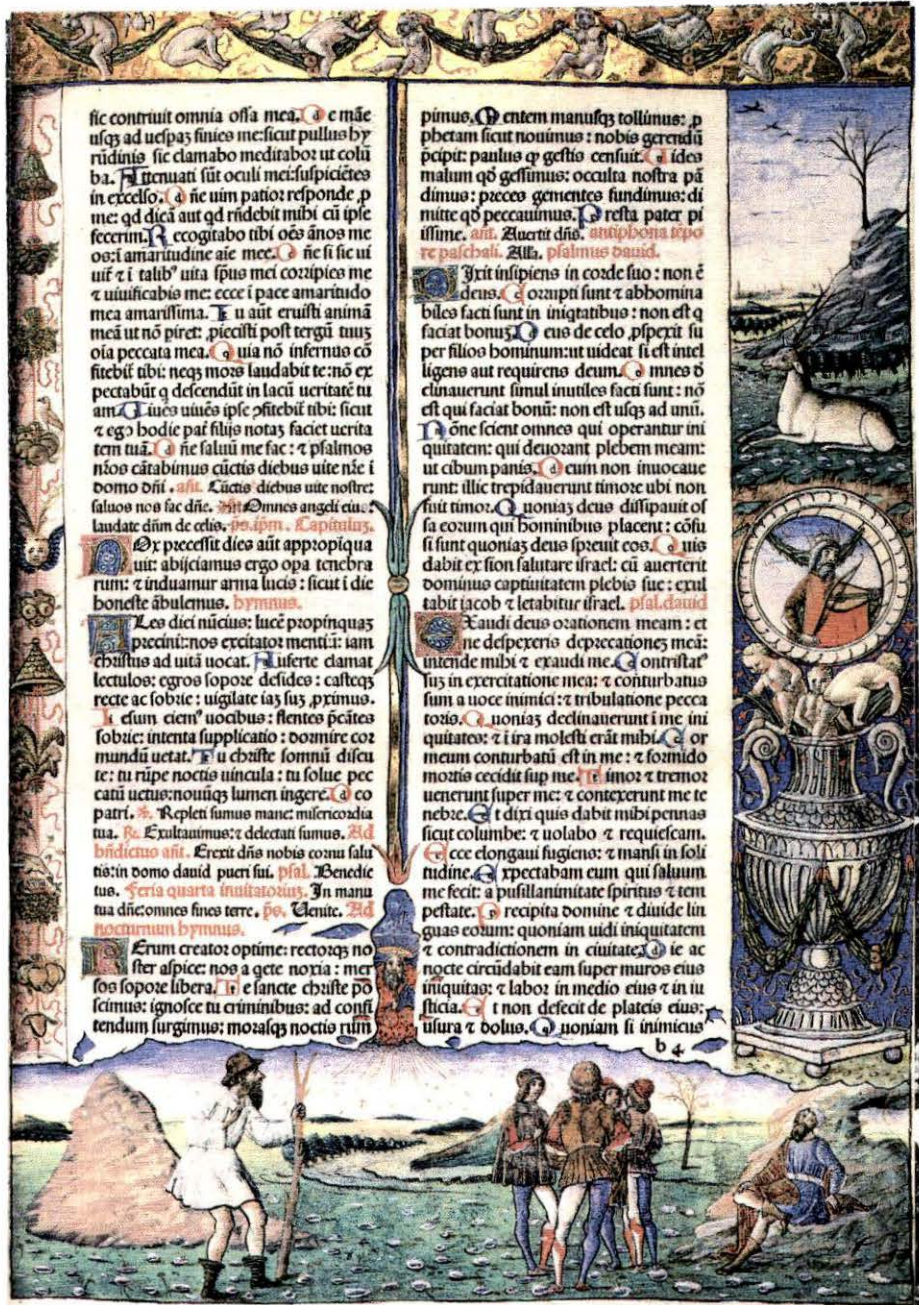 sic contriuit omnia ossa mea. De mãe
usqȝ ad uespaȝ finies me: sicut pullus hy
rũdinis sic clamabo meditabor ut colũ
ba. Attenuati sũt oculi mei: suspiciẽtes
in excelso. Dñe uim patior: responde ꝓ
me: qd dicã aut qd rñdebit mihi cũ ipse
fecerim. Recogitabo tibi oẽs ãnos me
os: ĩ amaritudine aĩe mee. Dñe si sic ui
uit̃ ⁊ ĩ talibꝰ uita sp̃us mei corripies me
⁊ uiuificabis me: ecce ĩ pace amaritudo
mea amarissima. Tu aũt eruisti animã
meã ut nõ piret: piecisti post tergũ tuuȝ
oĩa peccata mea. Quia nõ infernus cõ
fitebit̃ tibi: neqȝ mors laudabit te: nõ ex
pectabũt q descendũt in lacũ ueritatẽ tu
am. Uiuẽs uiuẽs ipse ꝯfitebit̃ tibi: sicut
⁊ ego hodie pat̃ filijs notaȝ faciet uerita
tem tuã. Dñe saluũ me fac: ⁊ psalmos
nr̃os cãtabimus cũctis diebus uite nr̃e ĩ
domo dñi. añt. Cũctis diebus uite nostre:
saluos nos fac dñe. Añt Omnes angeli eius:
laudate dñm de celis. ps. ip̃m. Capituluȝ.
NOx precessit dies aũt appropĩqua
uit: abijciamus ergo opa tenebra
rum: ⁊ induamur arma lucis: sicut ĩ die
honeste ãbulemus. hymnus.
ALes diei nũcius: lucẽ propinquaȝ
precinit: nos excitator mentiũ: iam
christus ad uitã uocat. Auferte clamat
lectulos: egros sopore desides: casteqȝ
recte ac sobrie: uigilate iaȝ suȝ ꝓximus.
Iesum ciemꝰ uocibus: flentes p̃cãtes
sobrie: intenta supplicatio: dormire cor
mundũ uetat. Tu christe somnũ discu
te: tu rũpe noctis uincula: tu solue pec
catũ uetus: nouũqȝ lumen ingere. Deo
patri. ℣. Repleti sumus mane: misericordia
tua. ℟. Exultauimus: ⁊ delectati sumus. Ad
bñdictus añt. Erexit dñs nobis cornu salu
tis: in domo dauid pueri sui. psal. Benedic
tus. Feria quarta inuitatoriuȝ. In manu
tua dñe: omnes fines terre. ps. Uenite. Ad
nocturnum hymnus.
RErum creator optime: rectorqȝ no
ster aspice: nos a qete noxia: mer
sos sopore libera. Te sancte christe po
scimus: ignosce tu criminibus: ad confi
tendum surgimus: morasqȝ noctis rum
pimus. Mentem manusqȝ tollimus: ꝓ
phetam sicut nouimus: nobis gerendũ
p̃cipit: paulus qꝫ gestis censuit. Uides
malum qð gessimus: occulta nostra pã
dimus: preces gementes fundimus: di
mitte qð peccauimus. Presta pater pi
issime. añt. Auertit dñs. antiphona tẽpo
re paschali. Alľa. psalmus dauid.
DIxit insipiens in corde suo: non ẽ
deus. Corrupti sunt ⁊ abhomina
biles facti sunt in iniqtatibus: non est q
faciat bonuȝ. Deus de celo ꝓspexit su
per filios hominum: ut uideat si est intel
ligens aut requirens deum. Omnes ð
clinauerunt simul inutiles facti sunt: nõ
est qui faciat bonũ: non est usqȝ ad unũ.
Nõne scient omnes qui operantur ini
quitatem: qui deuorant plebem meam:
ut cibum panis. Deum non inuocaue
runt: illic trepidauerunt timore ubi non
fuit timor. Quoniaȝ deus dissipauit os
sa eorum qui hominibus placent: cõfu
si sunt quoniaȝ deus spreuit eos. Quis
dabit ex sion salutare israel: cũ auerterit
dominus captiuitatem plebis sue: exul
tabit jacob ⁊ letabitur israel. psal. dauid
EXaudi deus orationem meam: et
ne despexeris deprecationeȝ meã:
intende mihi ⁊ exaudi me. Contristatꝰ
suȝ in exercitatione mea: ⁊ conturbatus
sum a uoce inimici: ⁊ tribulatione pecca
toris. Quoniaȝ declinauerunt ĩ me ini
quitates: ⁊ ĩ ira molesti erãt mihi. Cor
meum conturbatũ est in me: ⁊ formido
mortis cecidit sup me. Timor ⁊ tremor
uenerunt super me: ⁊ contexerunt me te
nebre. Et dixi quis dabit mihi pennas
sicut columbe: ⁊ uolabo ⁊ requiescam.
Ecce elongaui fugiens: ⁊ mansi in soli
tudine. Expectabam eum qui saluum
me fecit: a pusillanimitate spiritus ⁊ tem
pestate. Precipita domine ⁊ diuide lin
guas eorum: quoniam uidi iniquitatem
⁊ contradictionem in ciuitate. Die ac
nocte circũdabit eam super muros eius
iniquitas: ⁊ labor in medio eius ⁊ in iu
sticia. Et non defecit de plateis eius:
usura ⁊ dolus. Quoniam si inimicus
b 4